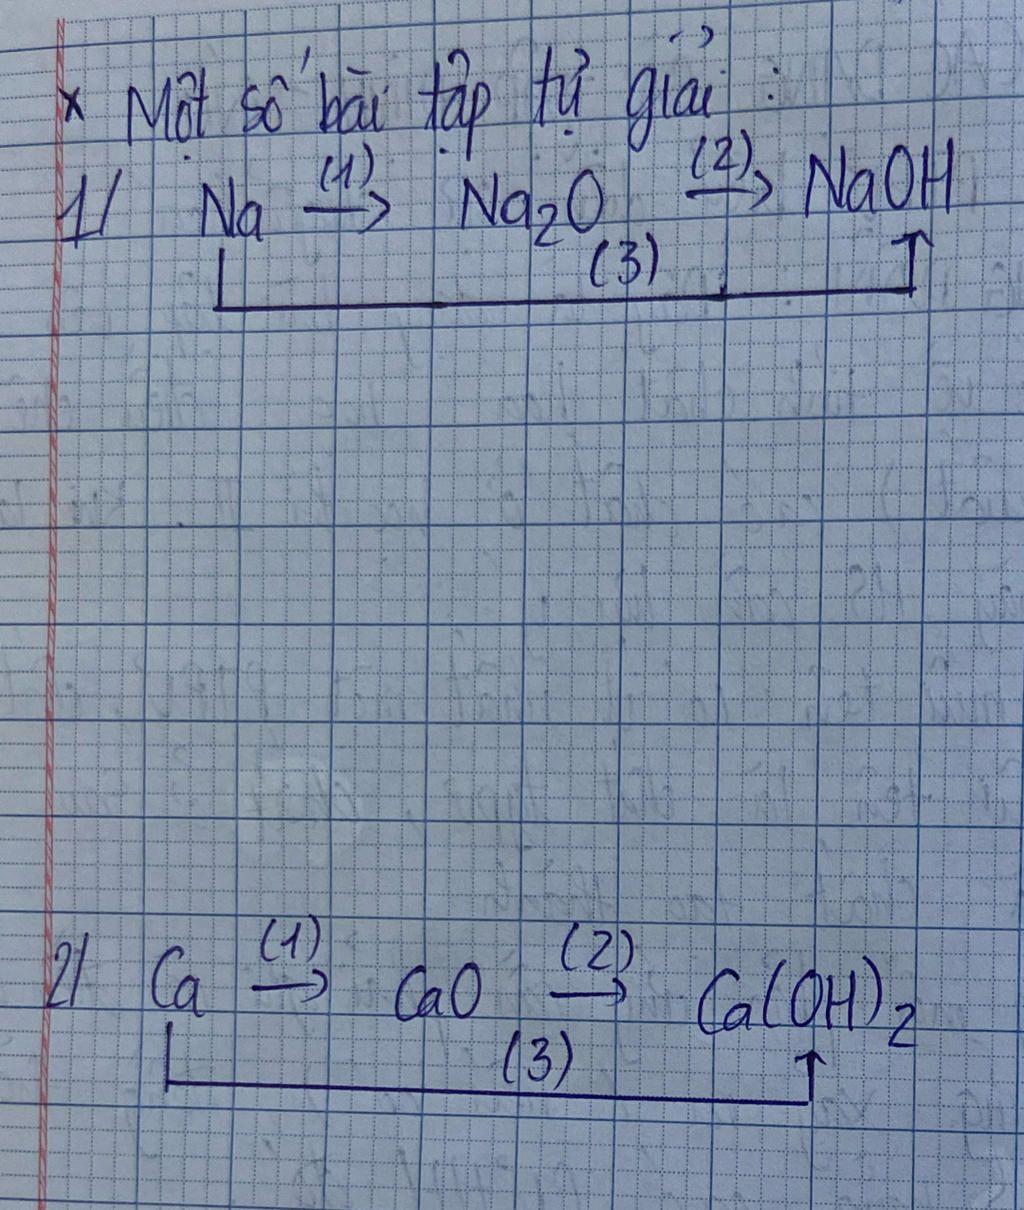 x Một số bài tập tự giải :
1/ Na (1)→ Na₂O (2)→ NaOH
(3)
2/ Ca (1)→ CaO (2)→ Ca(OH)₂
(3)